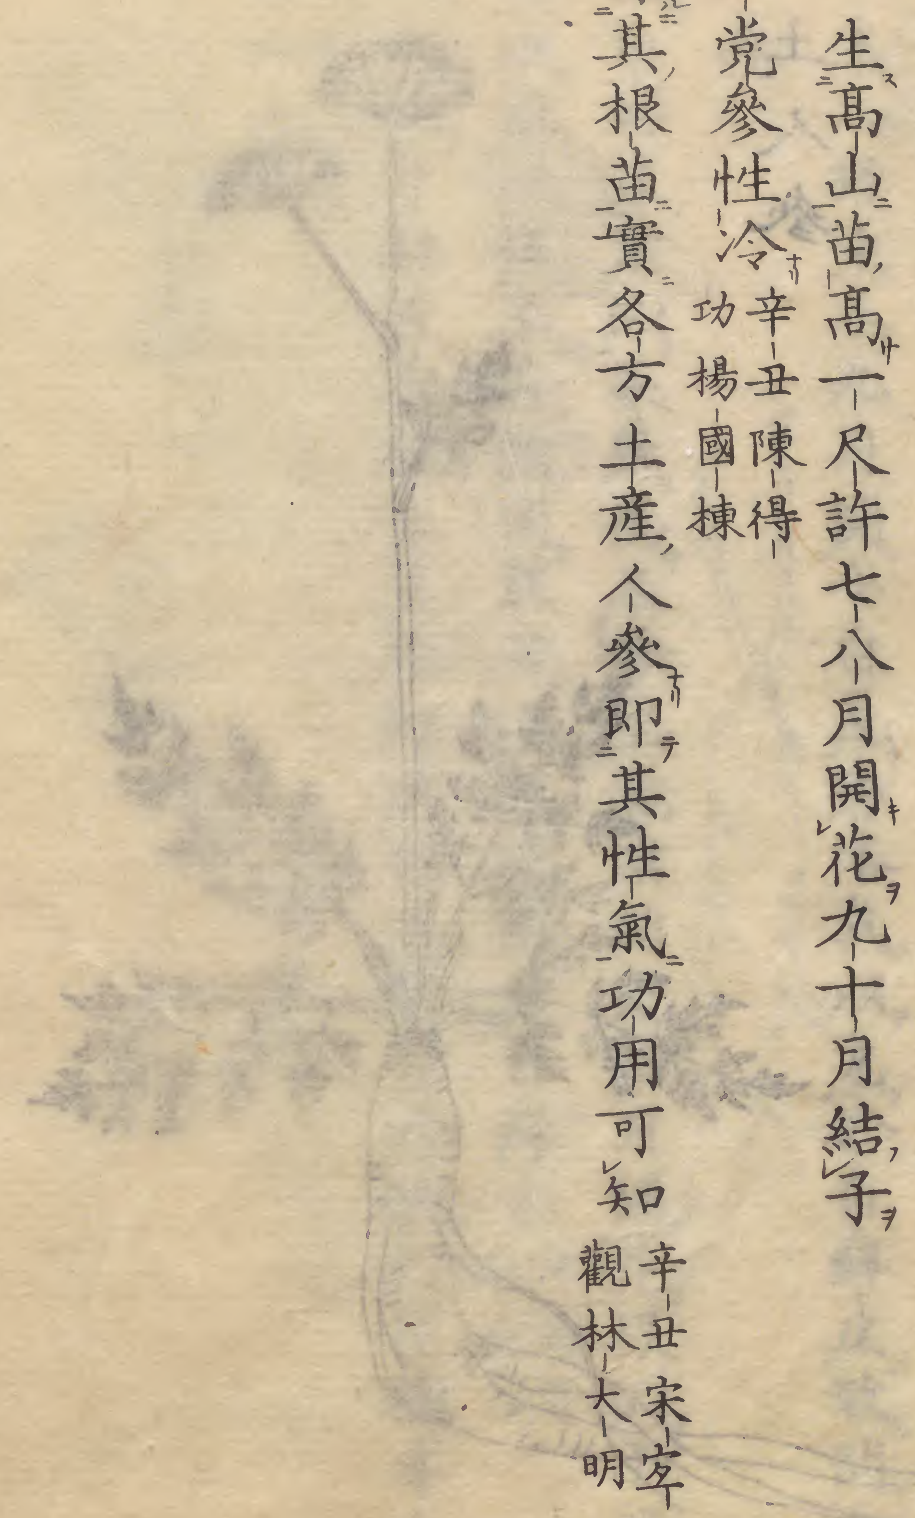 生高山苗高一尺許七八月開花九十月結子
党參性冷
辛丑陳得
功楊國棟
其根苗實各方土産人參即其性氣功用可知
辛丑宋
觀林大明